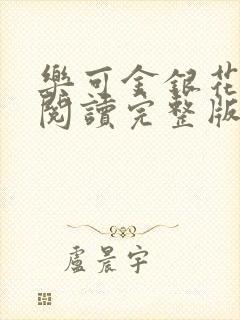 樂可金銀花
閱讀完整版
盧晨宇